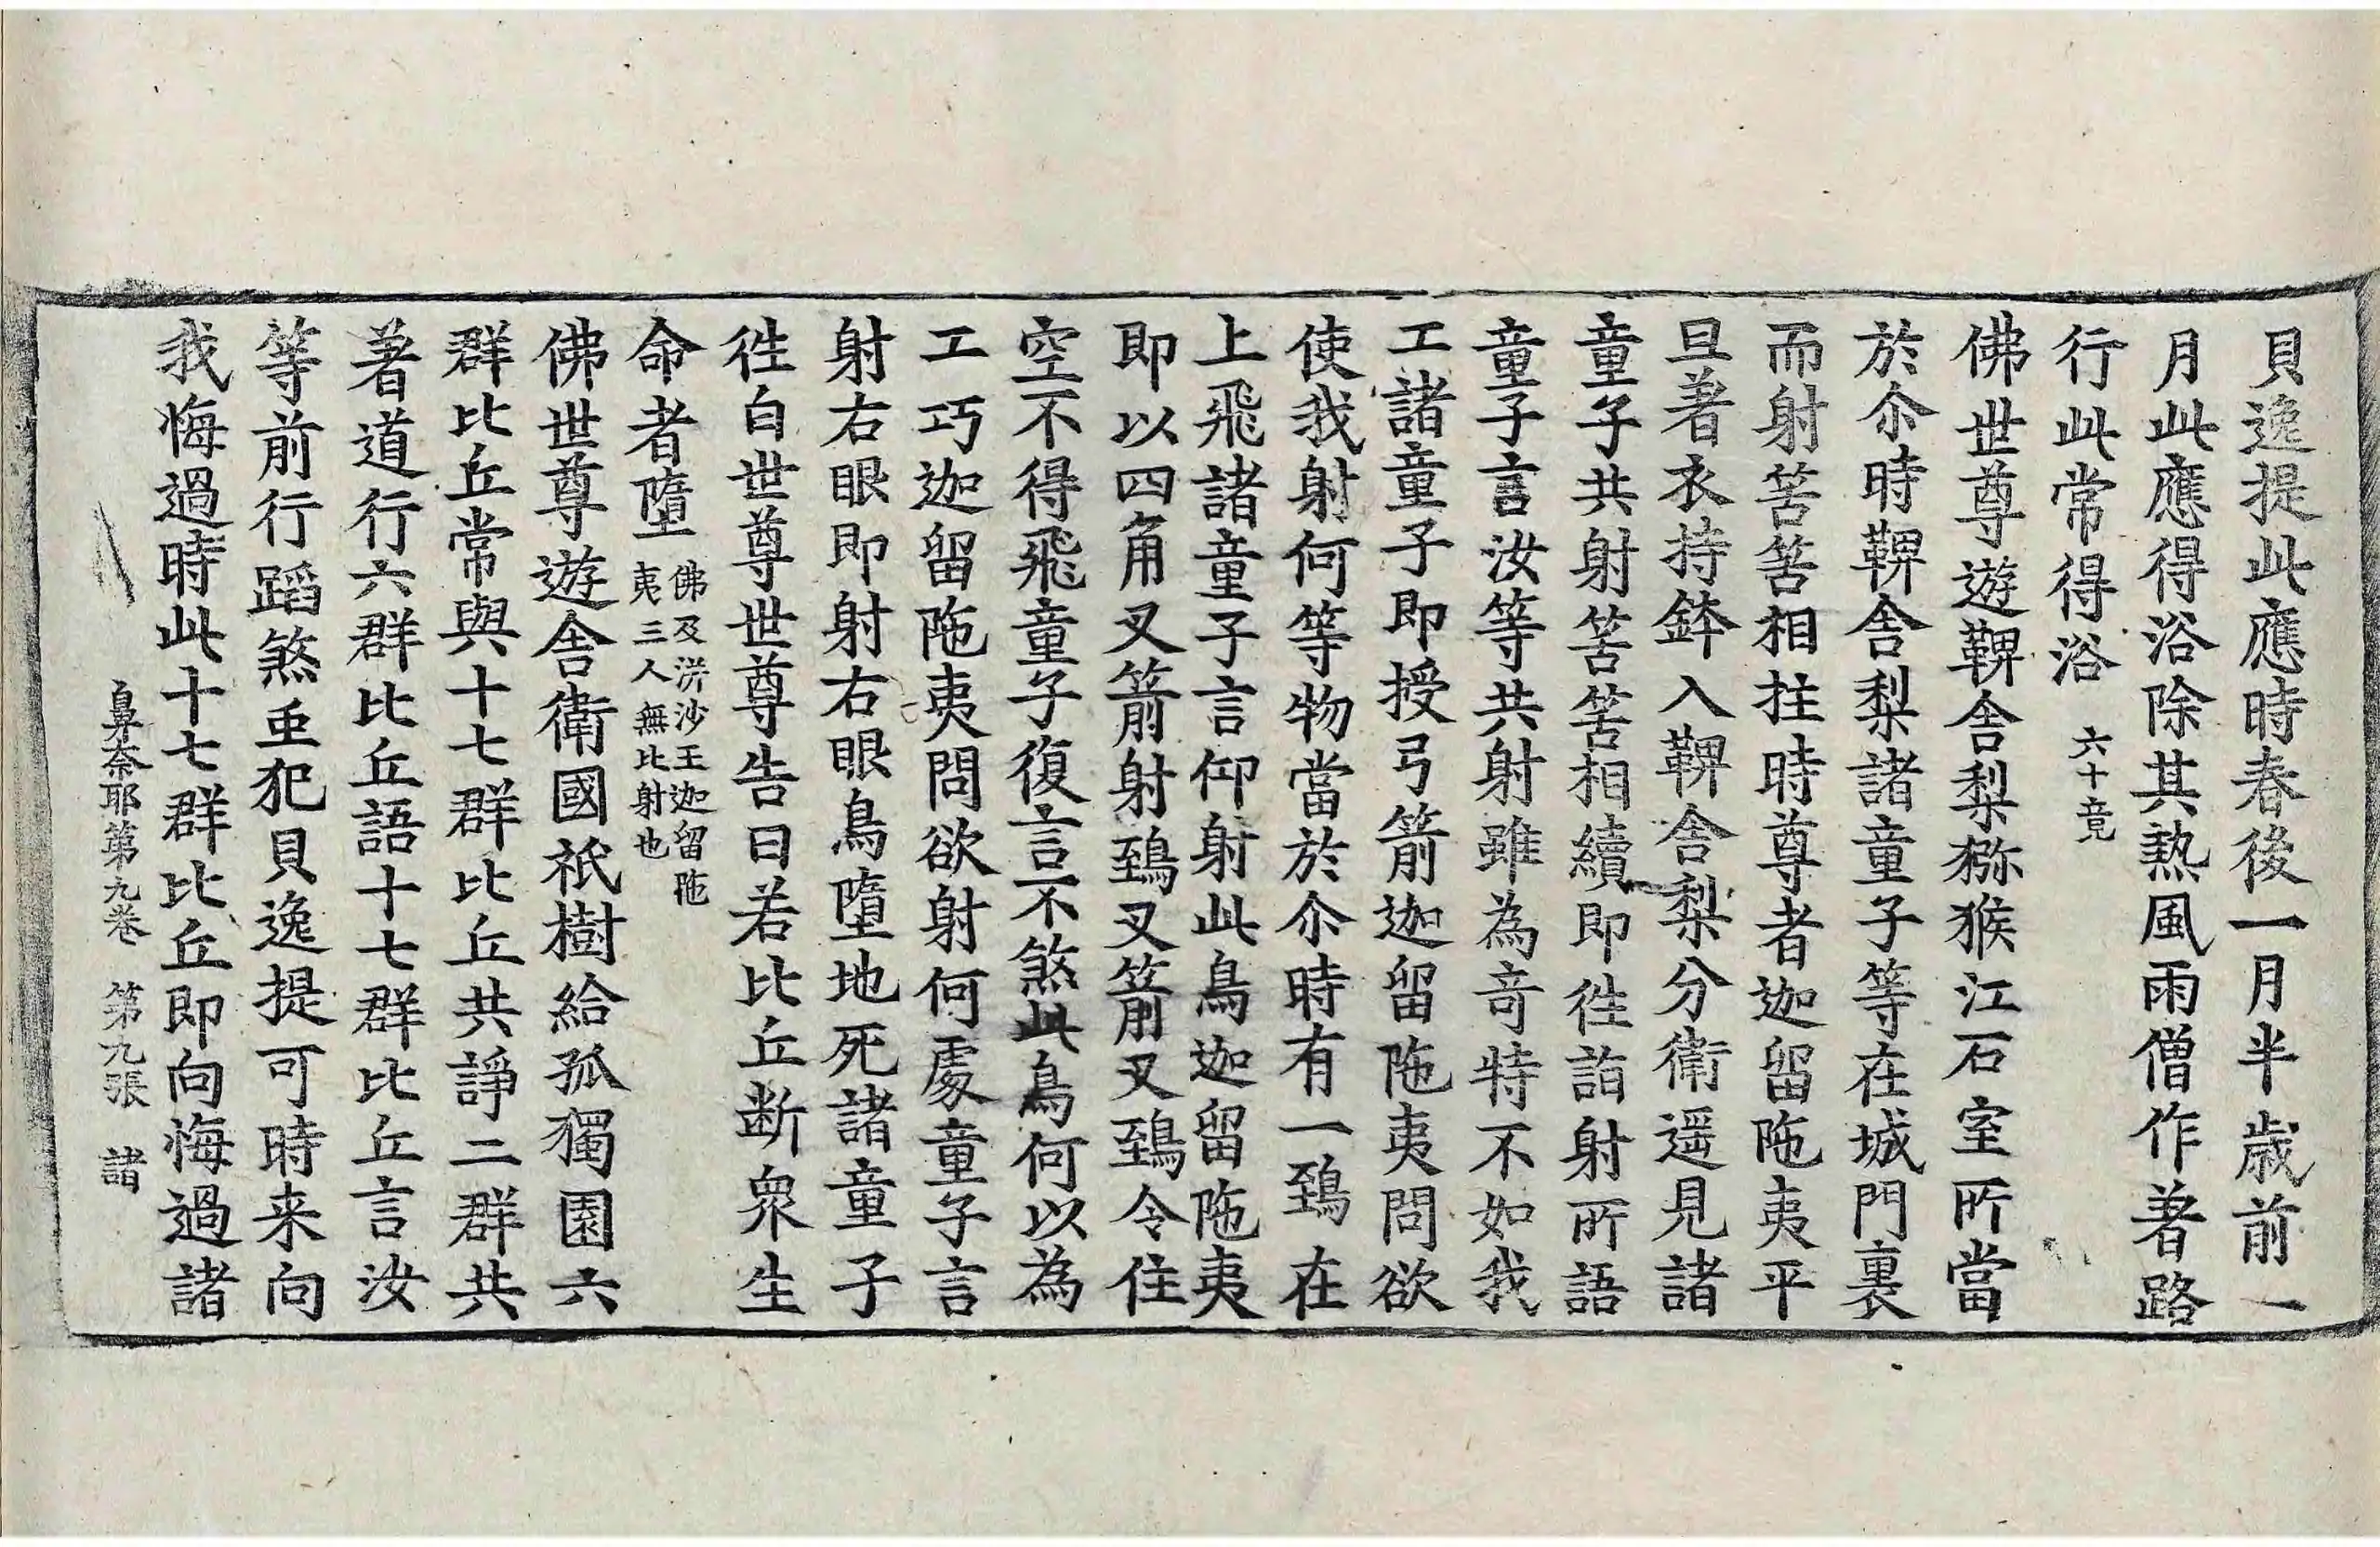 貝逸提此應時春後一月半歲前一
月此應得浴除其熱風雨僧作著路
行此常得浴 六十竟
佛世尊遊鞞舍梨獼猴江石室所當
於尒時鞞舍梨諸童子等在城門裏
而射筈筈相拄時尊者迦留陁夷平
旦著衣持鉢入鞞舍梨分衛遥見諸
童子共射筈筈相續即往詣射所語
童子言汝等共射雖為竒特不如我
工諸童子即授弓箭迦留陁夷問欲
使我射何等物當於尒時有一鵄在
上飛諸童子言仰射此鳥迦留陁夷
即以四角叉箭射鵄叉箭叉鵄令住
空不得飛童子復言不煞此鳥何以為
工巧迦留陁夷問欲射何處童子言
射右眼即射右眼鳥墮地死諸童子
往白世尊世尊告曰若比丘断眾生
命者墮 佛及洴沙王迦留陁
夷三人無比射也
佛世尊遊舍衛國祇樹給孤獨園六
群比丘常與十七群比丘共諍二群共
著道行六群比丘語十七群比丘言汝
等前行蹈煞虫犯貝逸提可時来向
我悔過時此十七群比丘即向悔過諸
鼻奈耶第九卷 第九張 諸